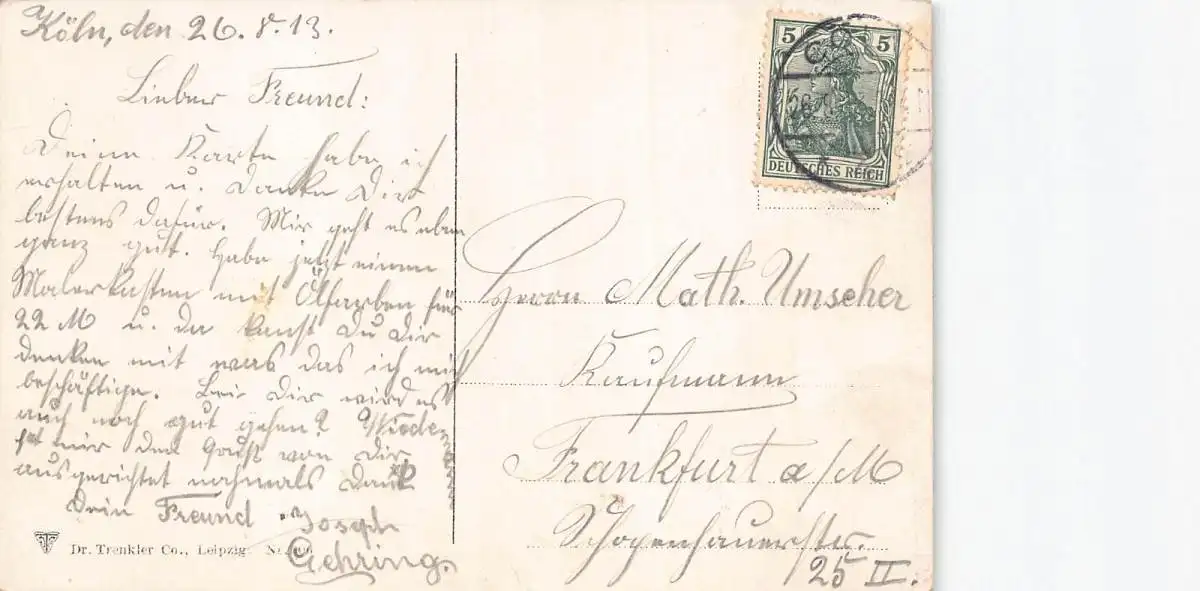 Köln, den 26.8.13.
Lieber Freund:
Deine Karte habe ich
erhalten u. danke Dir
bestens dafür. Mir geht es eben
ganz gut. Habe jetzt einen
Malerkasten mit Ölfarben für
22 M u. da kanst Du Dir
denken mit was das ich mich
beschäftige. Bei Dir wird es
auch noch gut gehen?
mir den Gruß von Dir
ausgerichtet nochmals Dank
Dein Freund Joseph
Gehring.
Dr. Trenkler Co., Leipzig.
5 5
DEUTSCHES REICH
Herrn Math. Umscher
Kaufmann
Frankfurt a/M
Schopenhauerstr.
25 II.